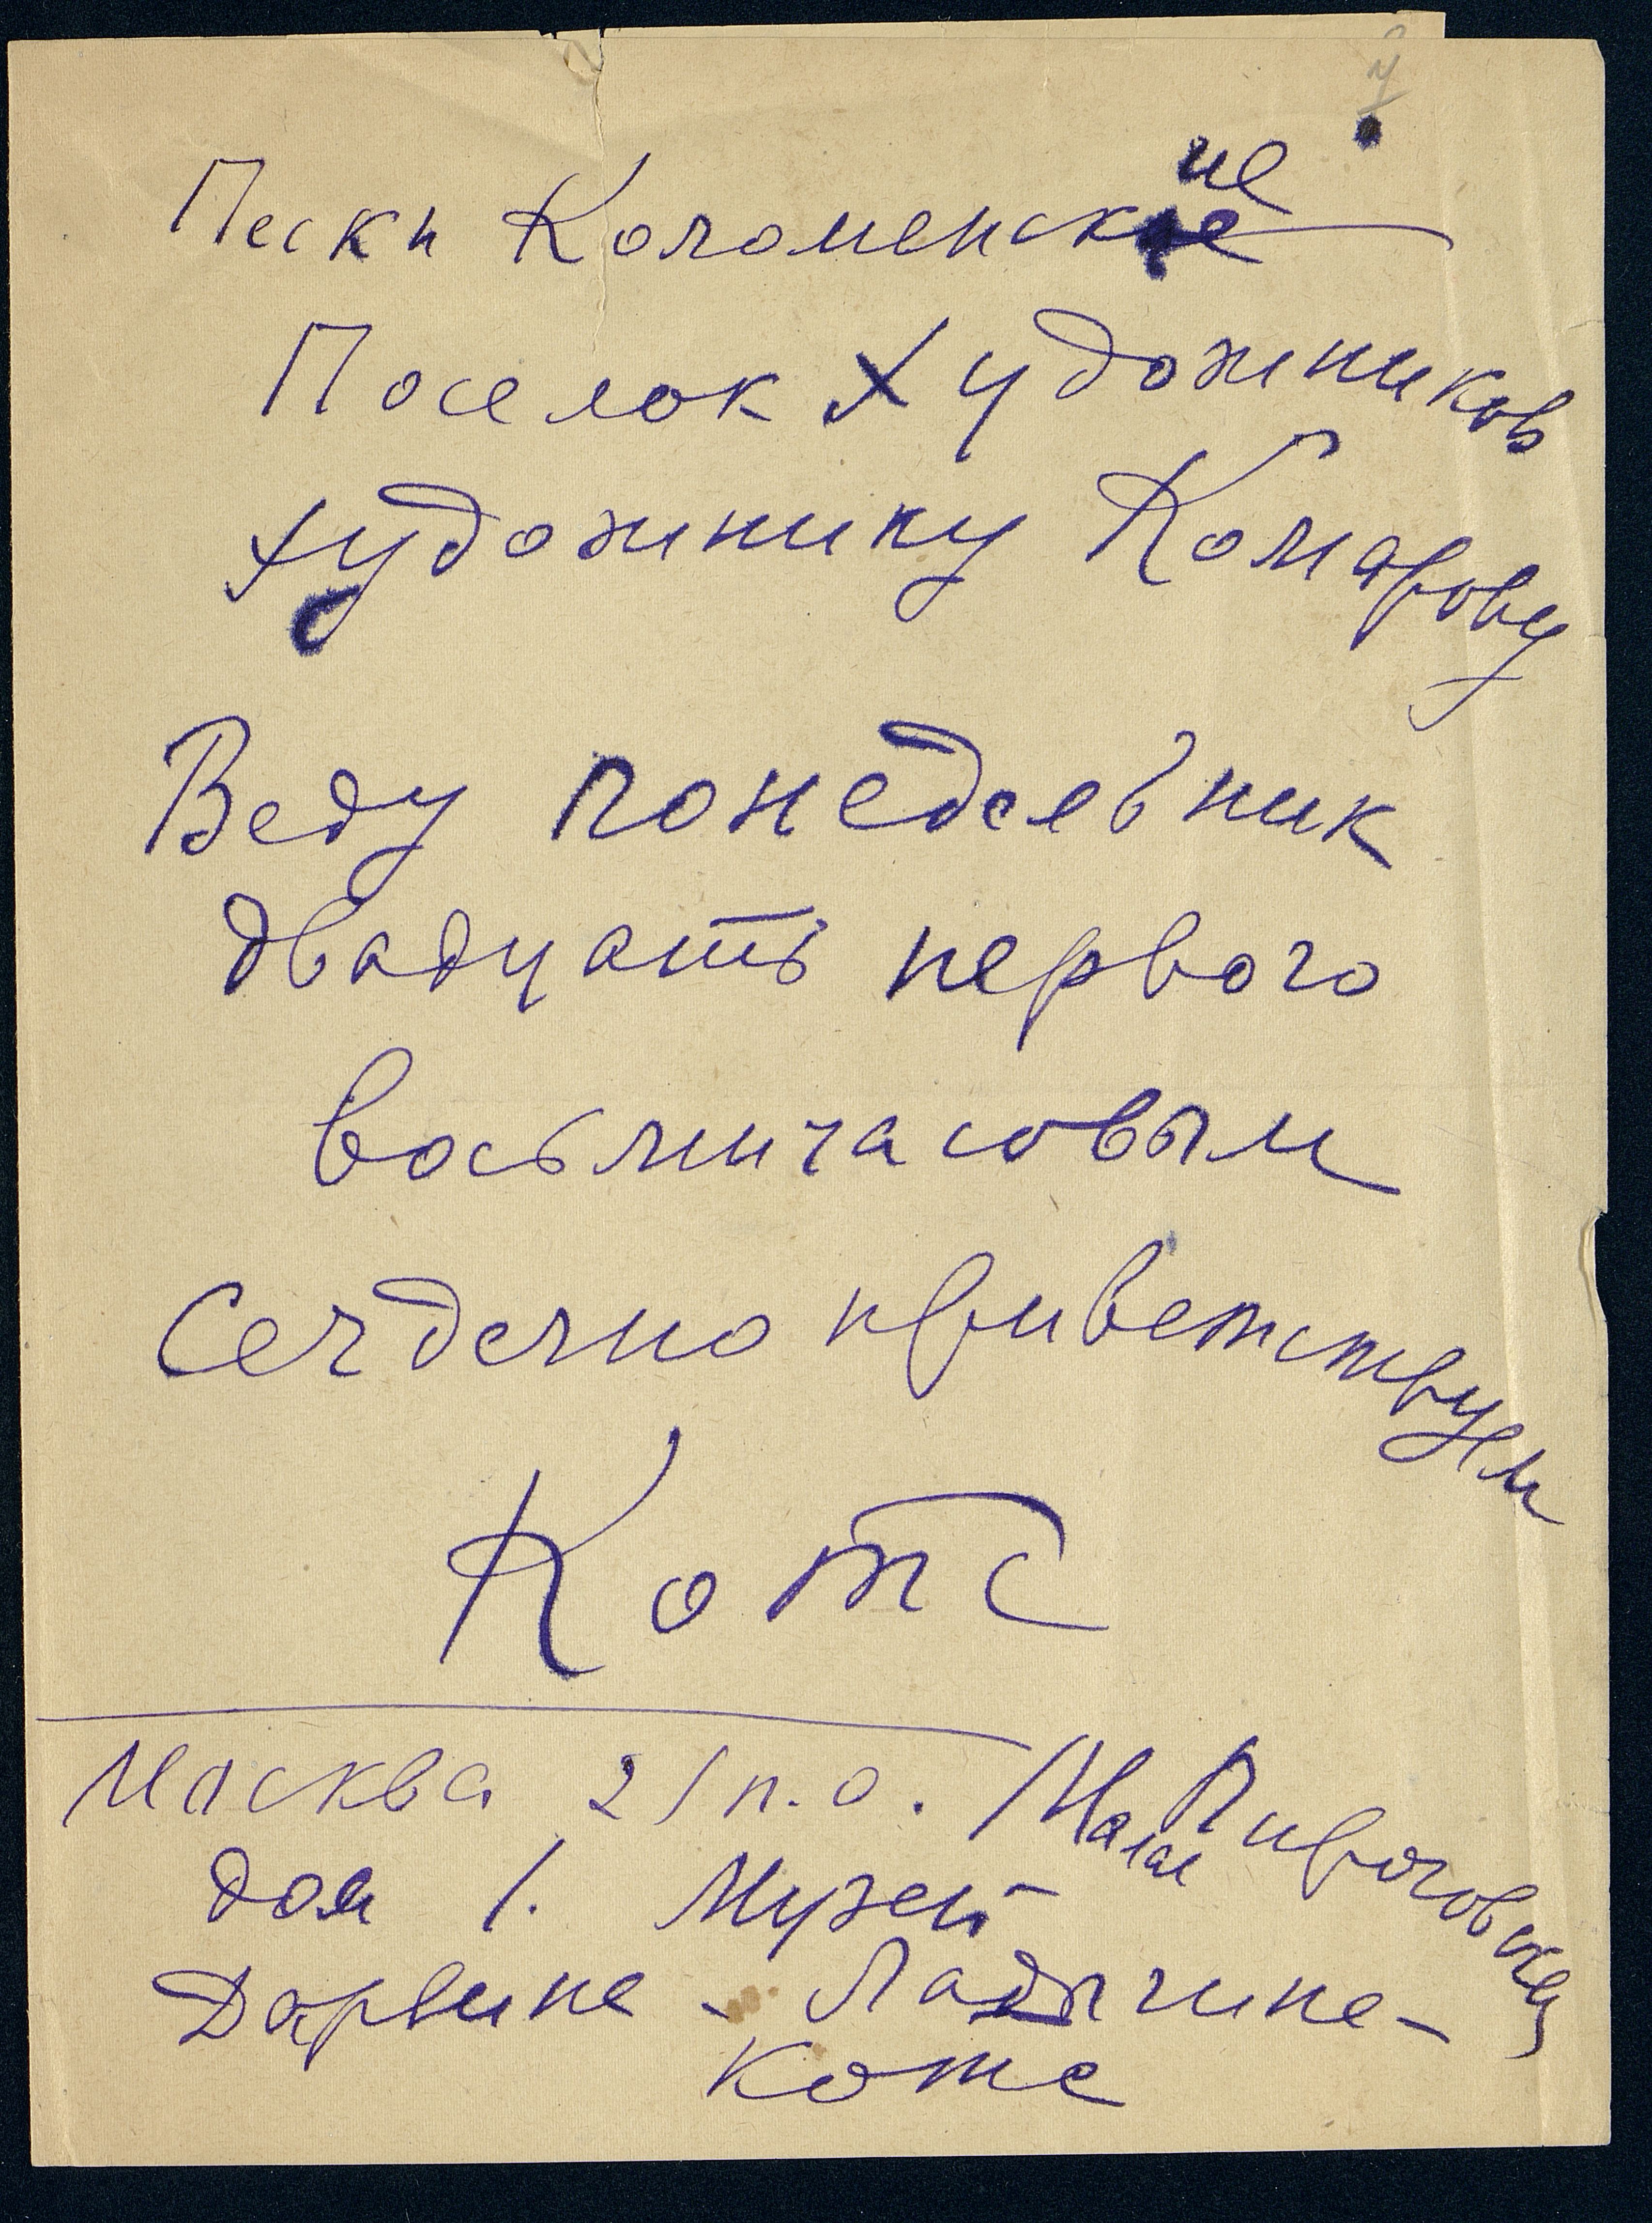 Пески Коломенские
Поселок Художников
художнику Комарову
Веду понедельник
двадцать первого
восьмичасовым
Сердечно приветствуем
Котс
Москва 21 п.о. Малая Пироговская
дом 1. Музей
Дарвина - Ладыгина-
Котс